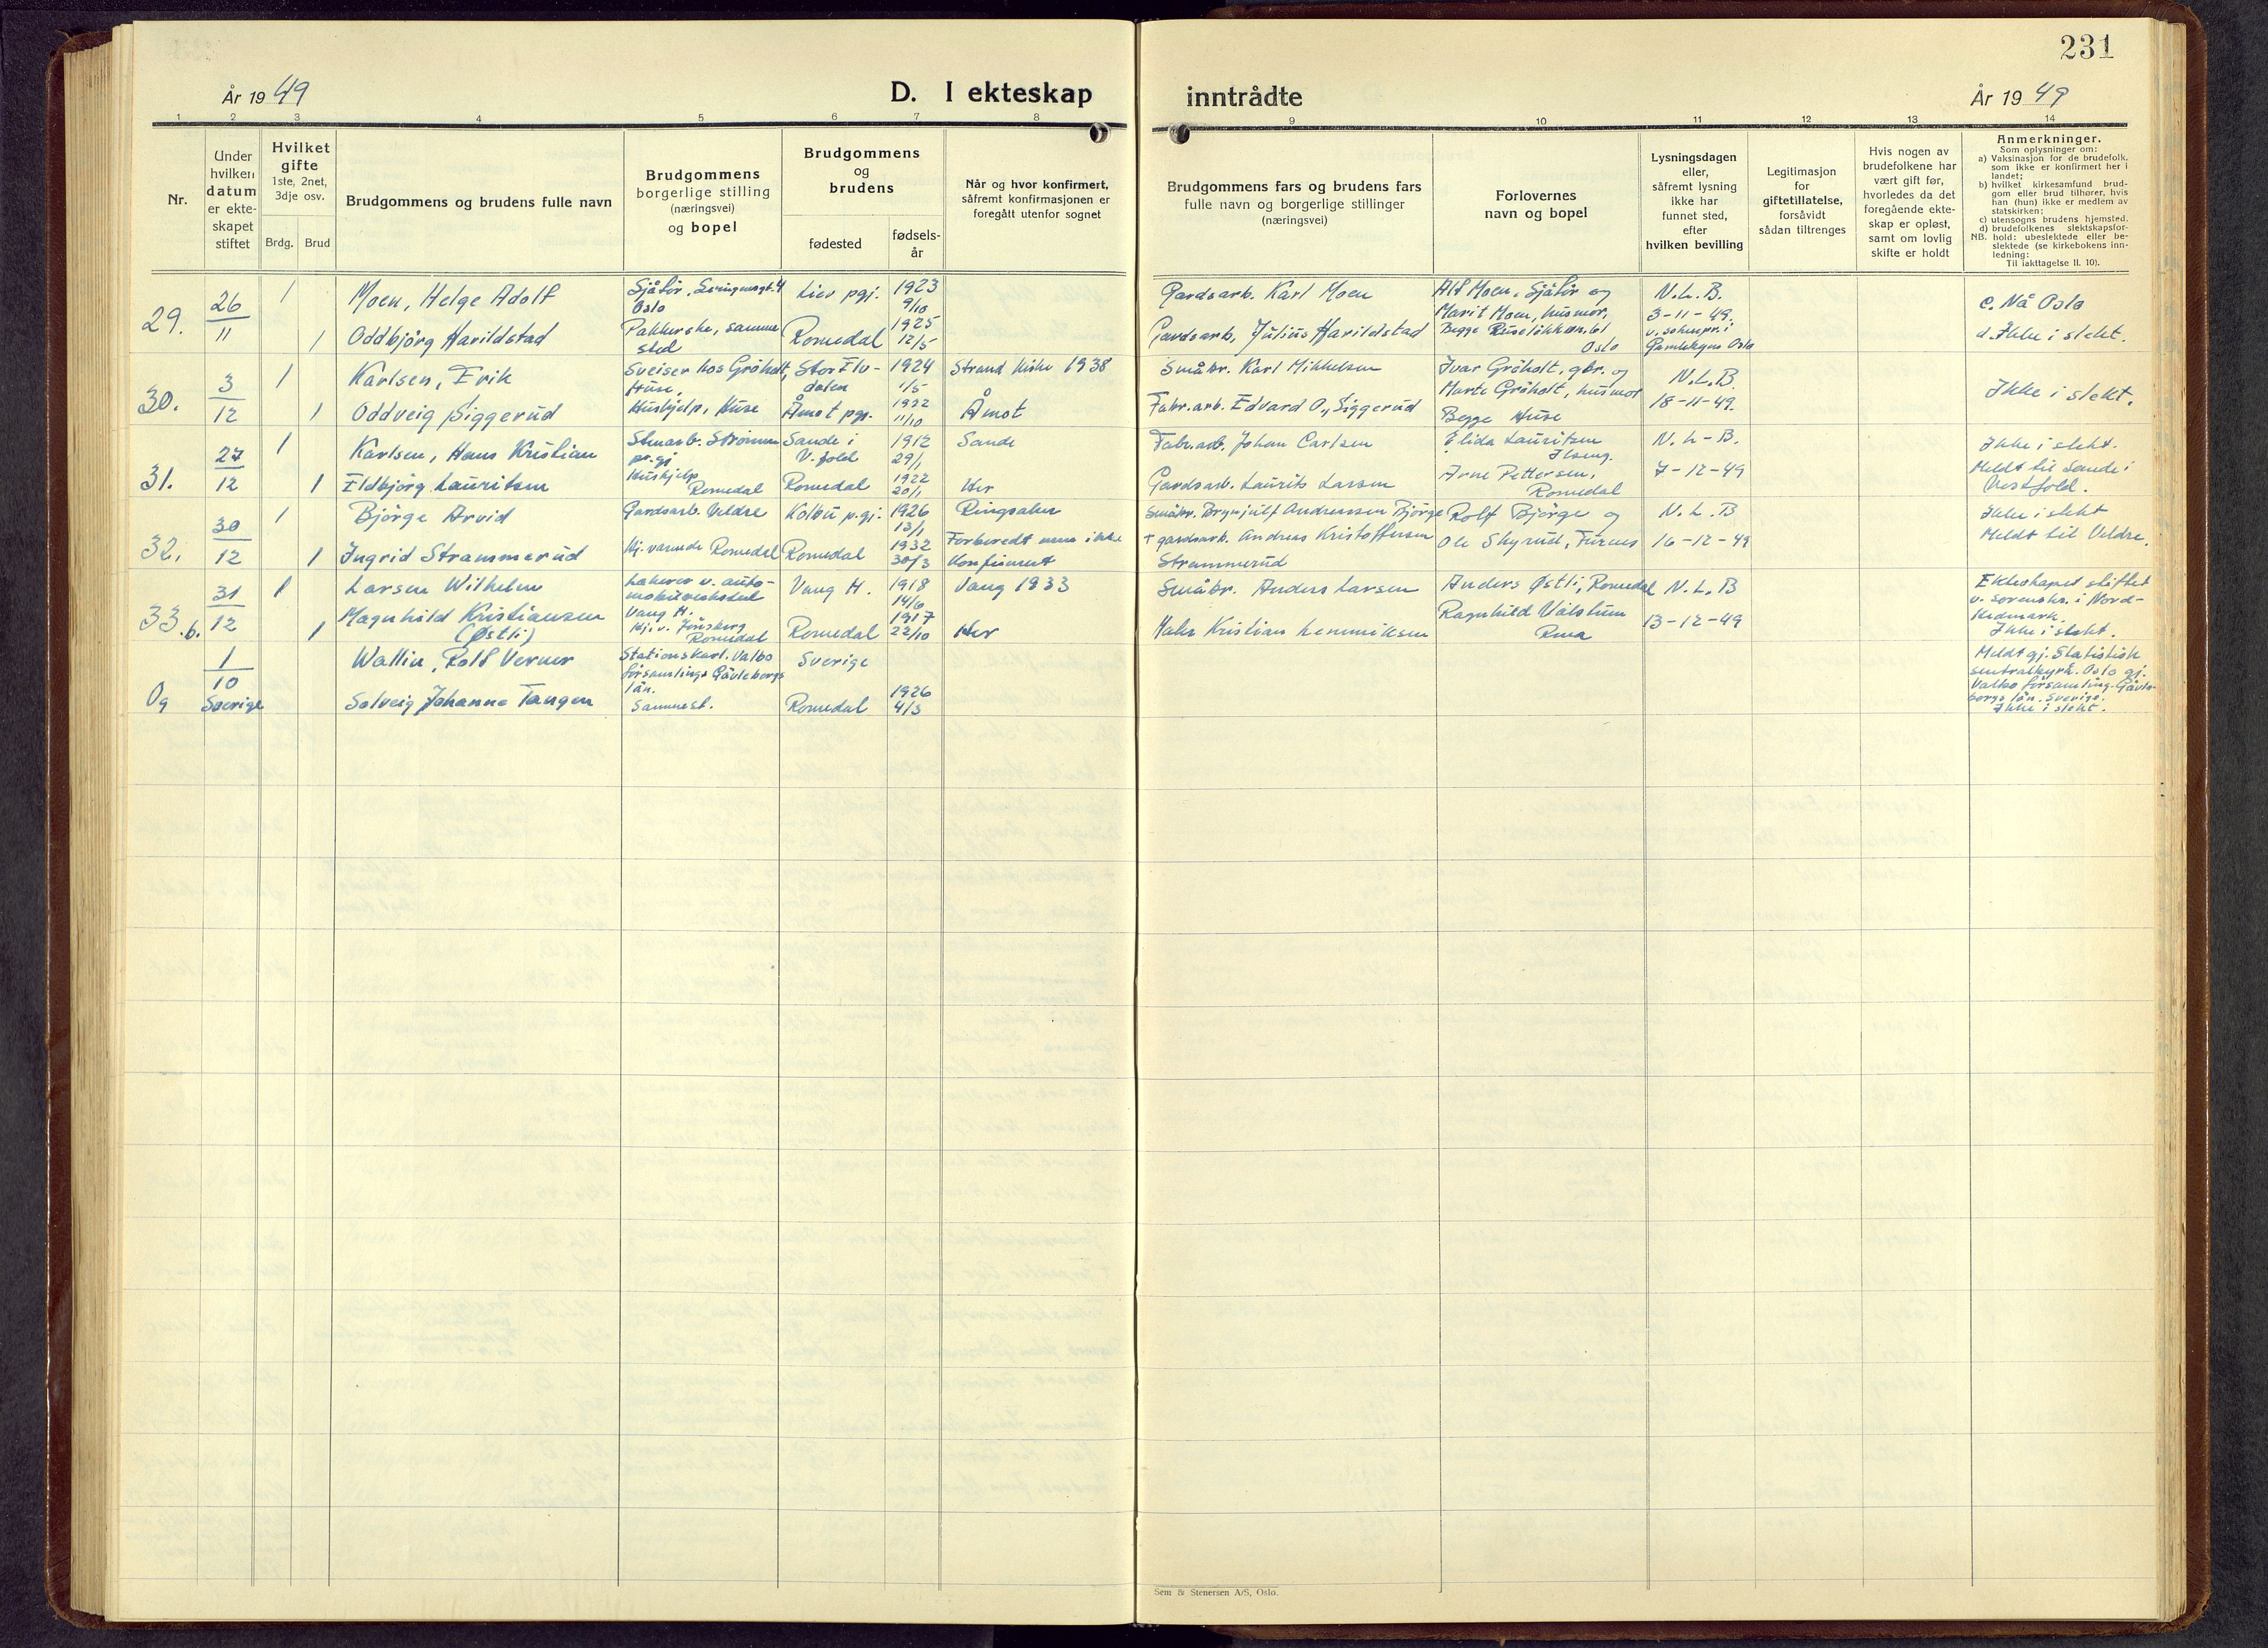 231
År 1949
D. I ekteskap inntrådte
År 1949
1 2 3 4 5 6 7 8 9 10 11 12 13 14
Nr.
Under
hvilken
datum
er ekte-
skapet
stiftet
Hvilket
gifte
1ste, 2net,
3dje osv.
Brdg. Brud
Brudgommens og brudens fulle navn
Brudgommens
borgerlige stilling
(næringsvei)
og bopel
Brudgommens
og
brudens
fødested
fødsels-
år
Når og hvor konfirmert,
såfremt konfirmasjonen er
foregått utenfor sognet
Brudgommens fars og brudens fars
fulle navn og borgerlige stillinger
(næringsvei)
Forlovernes
navn og bopel
Lysningsdagen
eller,
såfremt lysning
ikke har
funnet sted,
efter
hvilken bevilling
Legitimasjon
for
giftetillatelse,
forsåvidt
sådan tiltrenges
Hvis nogen av
brudefolkene har
vært gift før,
hvorledes da det
foregående ekte-
skap er opløst,
samt om lovlig
skifte er holdt
Anmerkninger.
Som oplysninger om:
a) Vaksinasjon for de brudefolk,
som ikke er konfirmert her i
landet;
b) hvilket kirkesamfund brud-
gom eller brud tilhører, hvis
han (hun) ikke er medlem av
statskirken;
c) utensogns brudens hjemsted.
d) brudefolkenes slektskapsfor-
NB. hold: ubeslektede eller be-
slektede (se kirkebokens inn-
ledning:
Til iakttagelse II. 10).
29.
26
11
1
Moen, Helge Adolf
Sjåfør,
Oslo
pgj.
1923
9/10
Gardsarb. Karl Moen
Alf Moen, Sjåfør og
Marit Moen, husmor,
Begge
Oslo
N.L.B.
3-11-49.
v. sokenpr. i
Gamlebyen Oslo
c. Nå Oslo
d. Ikke i slekt.
1
Oddbjörg Harildstad
Pakkerske, samme
sted
Romedal
1925
12/5
Gardsarb. Julius Harildstad
30.
3
12
1
Karlsen, Erik
Sveiser hos Gröholt,
Huse.
Stor Elv-
dalen
1924
1/5
Strand kirke 1938
Småbr. Karl Mikkelsen
Ivar Gröholt, gbr. og
Marte Gröholt, husmor
Begge Huse
N.L.B.
18-11-49.
Ikke i slekt.
1
Oddveig Siggerud
Hushjelp, Huse
Åmot pgj.
1922
11/10
Åmot
Fabr.arb. Edvard O. Siggerud
31.
27
12
1
Karlsen, Hans Kristian
Strömm
pr.gj
Sande i
V. fold
1912
29/1
Sande
Fabr.arb. Johan Carlsen
Elida Lauritsen
Ilseng.
Arne Pettersen,
Romedal
N. L-B.
7-12-49
Ikke i slekt.
Meldt til Sande i
Vestfold.
1
Eldbjörg Lauritsen
Hushjelp
Romedal
Romedal
1922
20/1
Her
Gardsarb. Laurits Larsen
32.
30
12
1
Björge Arvid
Gardsarb. Veldre
Kolbu p.gj.
1926
13/1
Ringsaker
Småbr. Brynjulf Andreassen Björge
Rolf Björge og
Ole Skyrud, Furnes
N. L. B
16-12-49
Ikke i slekt
Meldt til Veldre.
1
Ingrid Strammerud
Hj. værende Romedal
Romedal
1932
30/3
Forberedt men ikke
konfirmert
+ gardsarb. Andreas Kristoffersen
Strammerud
33.b.
31
12
1
Larsen Wilhelm
Lakerer v. auto-
mobilverksted
Vang H.
Vang H.
1918
14/6
Vang 1933
Småbr. Anders Larsen
Anders Østli, Romedal
Ragnhild
N. L. B
13-12-49
Ekteskapet stiftet
v. sorenskr. i Nord-
Hedmark.
Ikke i slekt.
1
Magnhild Kristiansen
(Østli)
Hj. v. Jönsberg
Romedal
Romedal
1917
22/10
Her
Maler Kristian Henriksen
Og
1
10
Sverige
Wallin, Rolf Verner
Stationskarl. Valbo
församlings Gävleborgs
län.
Sverige
Meldt gj. Statistisk
sentralbyrå. Oslo gj.
Valbo församling. Gävle-
borgs län. Sverige.
Ikke i slekt.
Solveig Johanne Tangen
Sammest.
Romedal
1926
4/3
Sem & Stenersen A/S, Oslo.